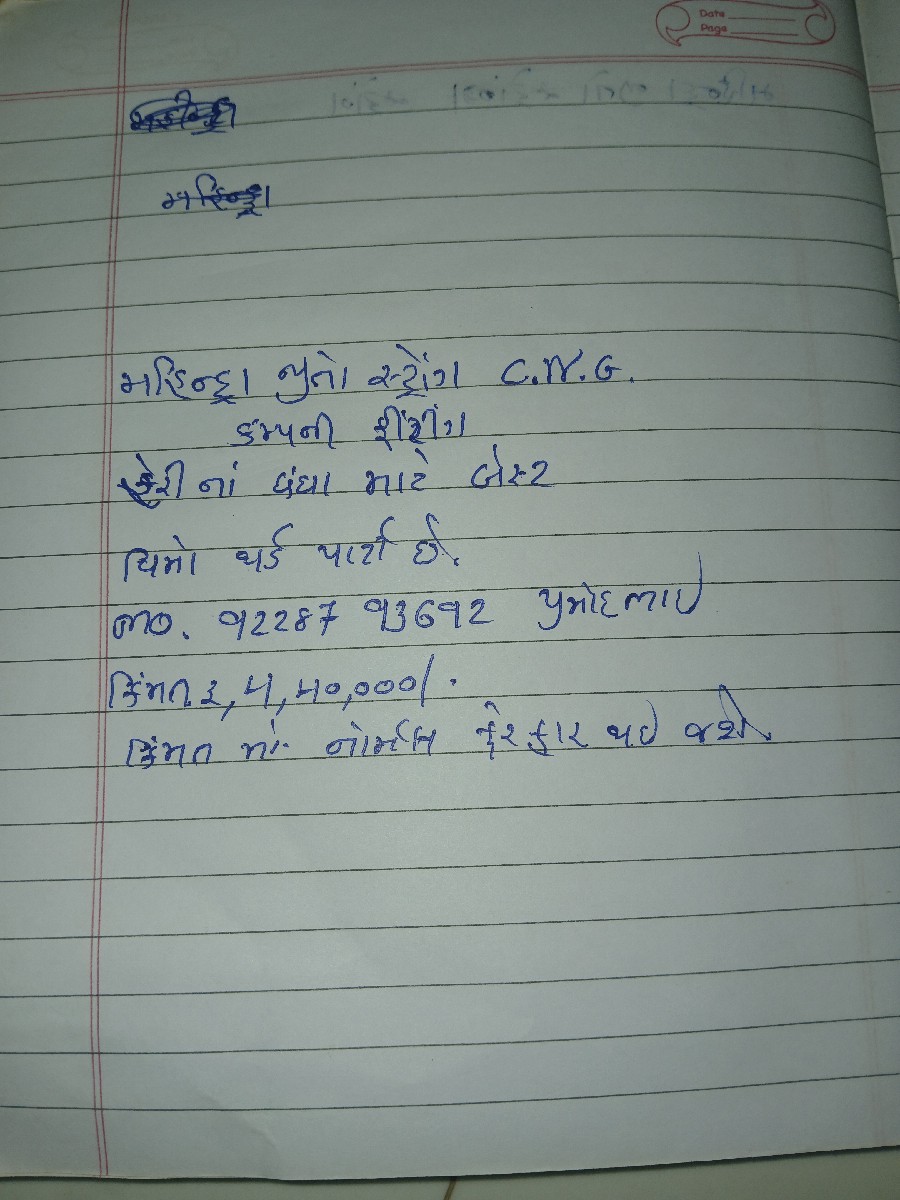 Date
Page
મહિન્દ્રા
મહિન્દ્રા જીતો સ્ટ્રોંગ C.N.G.
કમ્પની ફીટીંગ
ફેરી નાં ધંધા માટે બેસ્ટ
વિમો થર્ડ પાર્ટી છે.
mo. ૧2287 ૧36૧2 પ્રમોદભાઇ
કિંમત રૂ, ૫,૫૦,૦૦૦/.
કિંમત માં નોર્મલ ફેરફાર થઇ જશે.